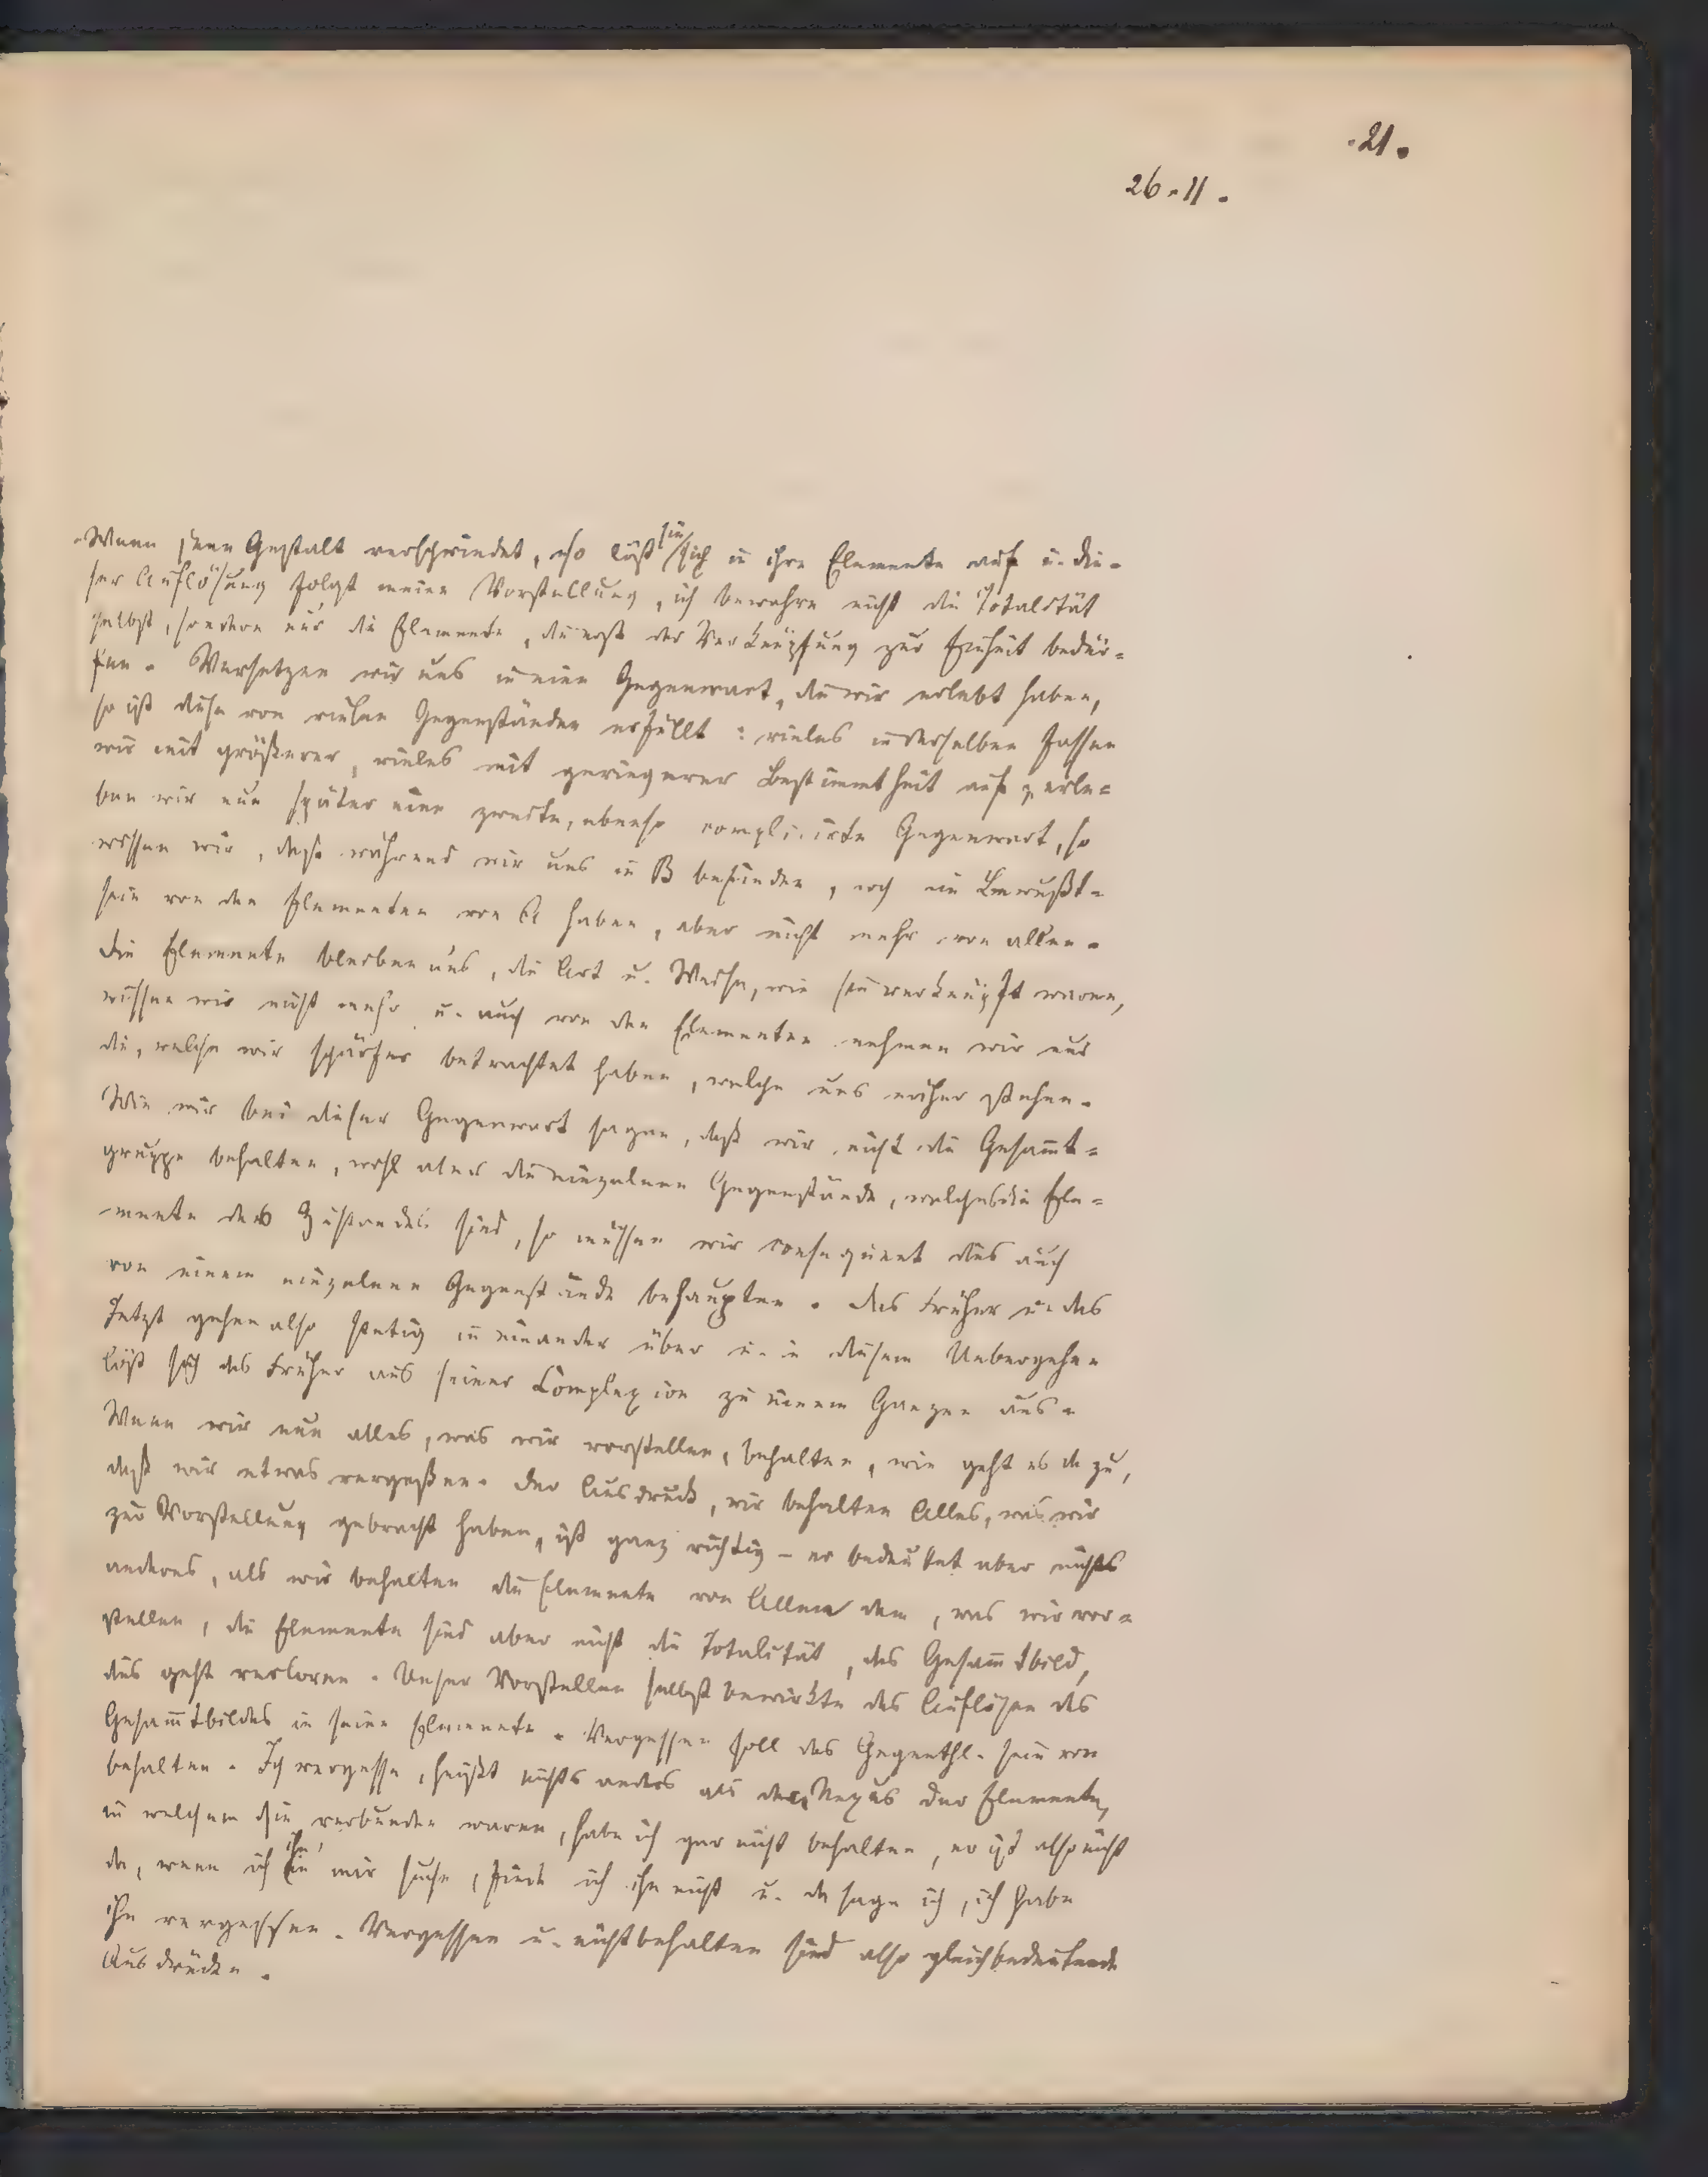 .21.
26.11.
Wenn jene Gestalt verschwindet, so löst sie sich in ihre Elemente auf u. die-
ser Auflösung folgt meine Vorstellung, ich bewahre nicht die Totalität
selbst, sondern nur die Elemente, die erst der Verknüpfung zur Einheit bedür=
fen. Versetzen wir uns in eine Gegenwart, die wir erlebt haben,
so ist diese von vielen Gegenständen erfüllt: vieles in derselben fassen
wir mit größerer, vieles mit geringerer Bestimmtheit auf, erle=
ben wir nun später eine zweite, ebenso complicirte Gegenwart, so
wissen wir, daß während wir uns in B befinden, noch ein Bewußt=
sein von den Elementen von A haben, aber nicht mehr von allen.
Die Elemente bleiben uns, die Art u. Weise, wie sie verknüpft waren,
wissen wir nicht mehr u. auch von den Elementen nehmen wir nur
die, welche wir schärfer betrachtet haben, welche uns näher stehen.
Wie wir bei dieser Gegenwart sagen, daß wir nicht die Gesam̅t=
gruppe behalten, wohl aber die einzelnen Gegenstände, welches die Ele=
mente des Zustandes sind, so müssen wir consequent dies auch
von einem einzelnen Gegenstände behaupten. Das Früher u. das
Jetzt gehen also stetig in einander über u. in diesem Uebergehen
löst sich das Früher aus seiner Complexion zu einem Ganzen aus.
Wenn wir nun alles, was wir vorstellen, behalten, wie geht es da zu,
daß wir etwas vergeßen. Der Ausdruck, wir behalten Alles, was wir
zur Vorstellung gebracht haben, ist ganz richtig – er bedeutet aber nichts
anderes, als wir behalten die Elemente von Allem dem, was wir vor=
stellen, die Elemente sind aber nicht die Totalität, das Gesam̅tbild,
dies geht verloren. Unser Vorstellen selbst bewirkte das Auflösen des
Gesam̅tbildes in seine Elemente. Vergessen soll das Gegenthl. sein von
behalten. Ich vergesse, heißt nichts anders als den Nexus der Elemente,
in welchem sie verbunden waren, habe ich gar nicht behalten, er ist also nicht
da, wenn ich ihn in mir suche, finde ich ihn nicht u. da sage ich, ich habe
ihn vergessen. Vergessen u. nichtbehalten sind also gleichbedeutende
Ausdrücke.